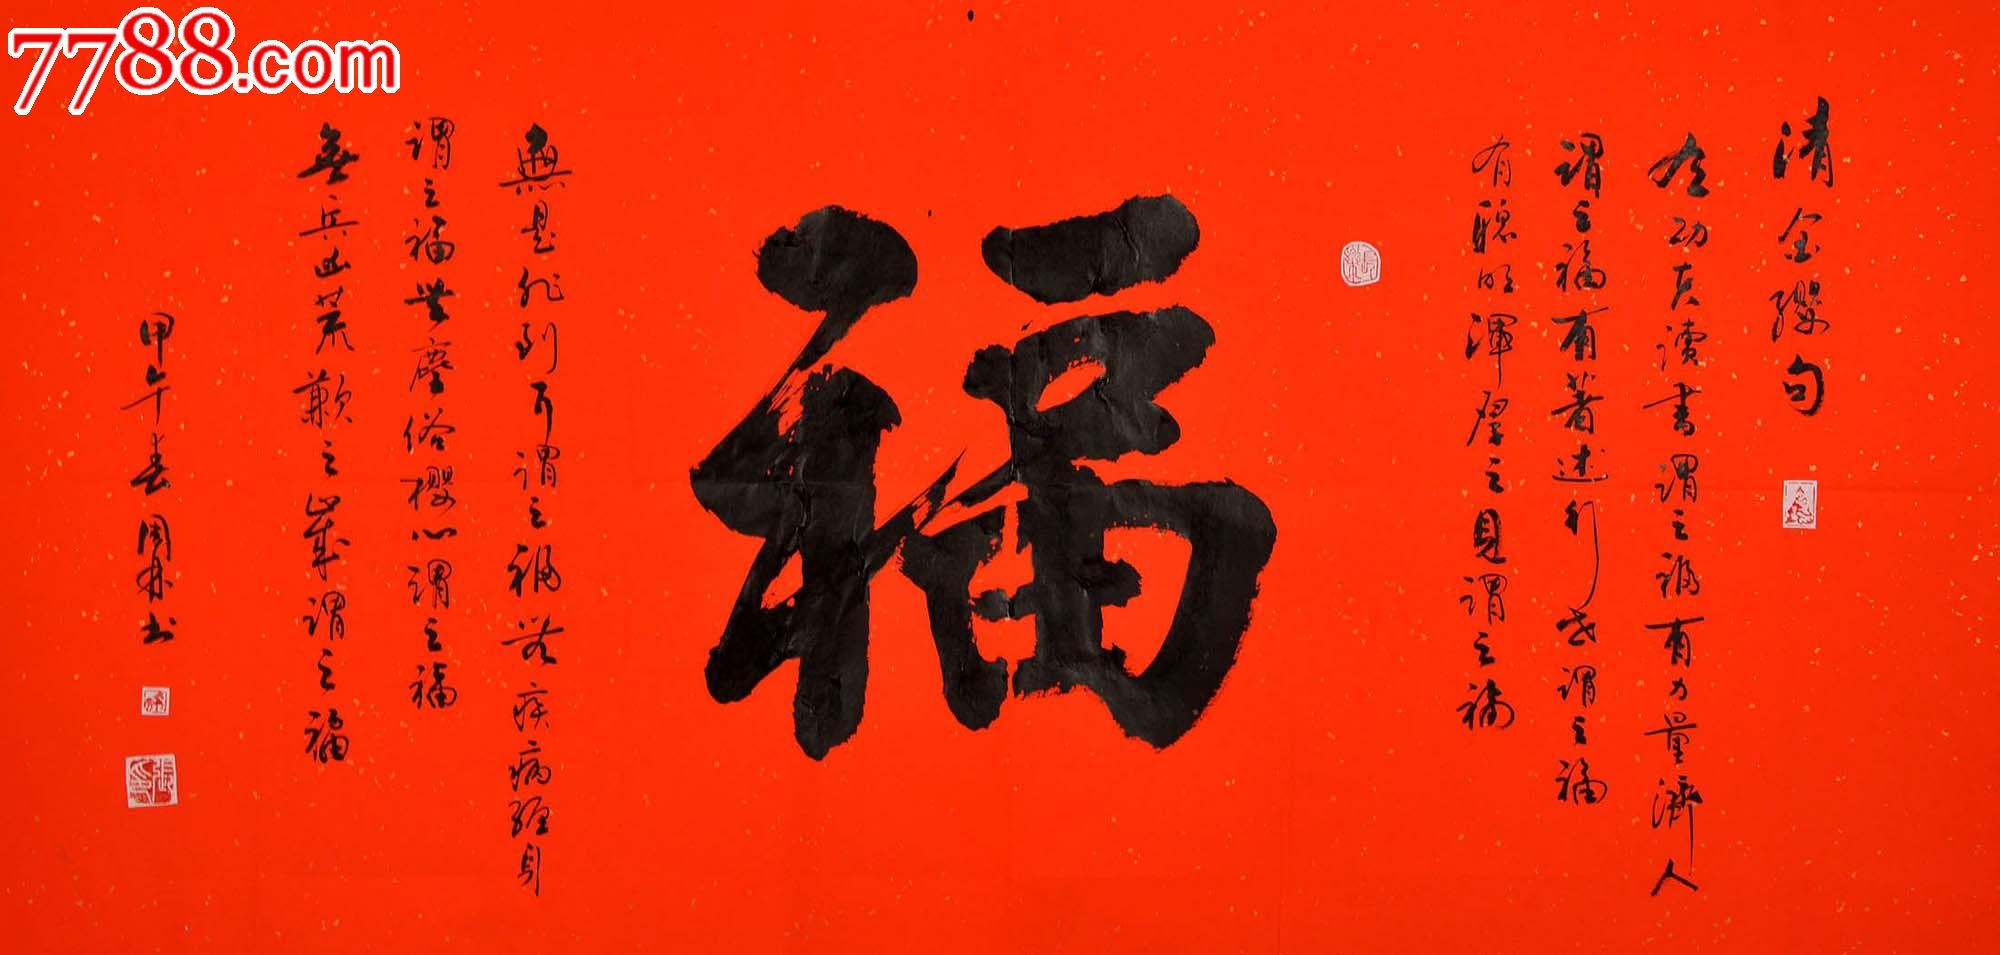 7788.com
清金纓句
有功夫讀書謂之福有力量濟人
謂之福有著述行世謂之福
有聰明渾厚之見謂之福
福
無是非到耳謂之福無疾病纏身
謂之福無塵俗攖心謂之福
無兵凶荒歉之歲謂之福
甲午春书